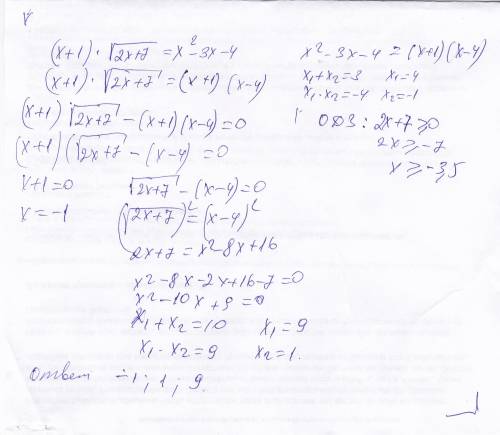 (x+1)·√(2x+7) = x²-3x-4
(x+1)·√(2x+7) = (x+1)(x-4)
(x+1)√(2x+7) - (x+1)(x-4) = 0
(x+1)(√(2x+7) - (x-4) = 0
x+1=0 √(2x+7) - (x-4) = 0
x=-1 (√(2x+7))² = (x-4)²
2x+7 = x²-8x+16
x²-8x-2x+16-7=0
x²-10x+9=0
x₁+x₂=10 x₁=9
x₁·x₂=9 x₂=1.
Ответ -1; 1; 9.
x²-3x-4 = (x+1)(x-4)
x₁+x₂=3 x₁=4
x₁·x₂=-4 x₂=-1
ОДЗ: 2x+7≥0
2x≥-7
x≥-3,5